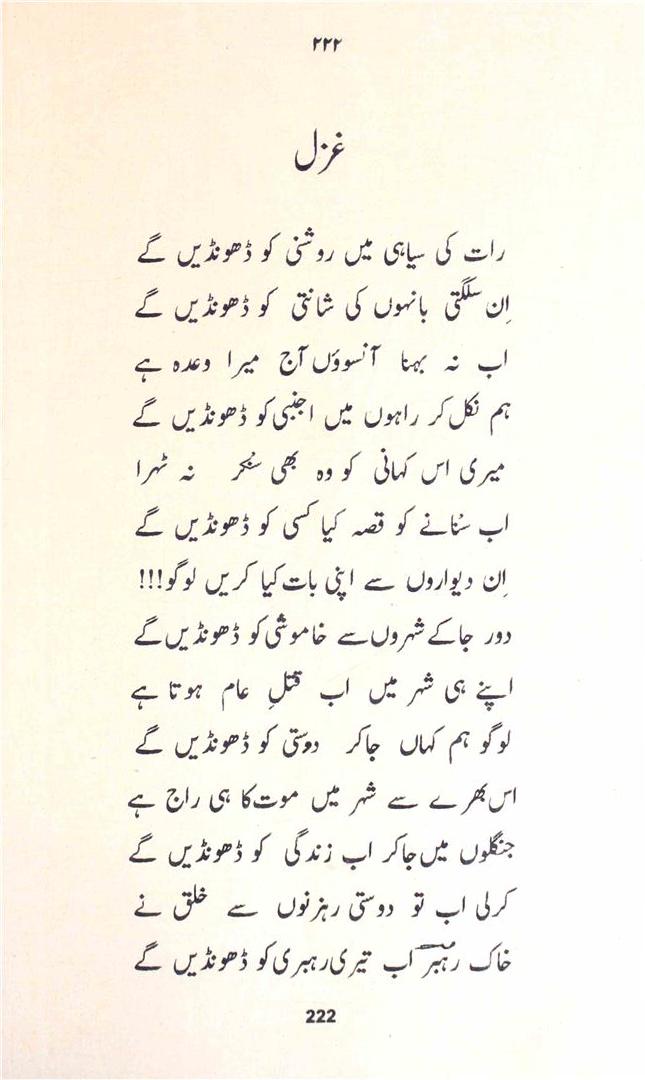 ۲۲۲
غزل
رات کی سیاہی میں روشنی کو ڈھونڈیں گے
اِن سلگتی بانہوں کی شانتی کو ڈھونڈیں گے
اب نہ بہنا آنسوؤں آج میرا وعدہ ہے
ہم نکل کر راہوں میں اجنبی کو ڈھونڈیں گے
میری اس کہانی کو وہ بھی سُنکر نہ ٹہرا
اب سُنانے کو قصہ کیا کسی کو ڈھونڈیں گے
اِن دیواروں سے اپنی بات کیا کریں لوگو!!!
دور جا کے شہروں سے خاموشی کو ڈھونڈیں گے
اپنے ہی شہر میں اب قتلِ عام ہوتا ہے
لوگو ہم کہاں جاکر دوستی کو ڈھونڈیں گے
اس بھرے سے شہر میں موت کا ہی راج ہے
جنگلوں میں جاکر اب زندگی کو ڈھونڈیں گے
کرلی اب تو دوستی رہزنوں سے خلق نے
خاک رہبرؔ اب تیری رہبری کو ڈھونڈیں گے
222